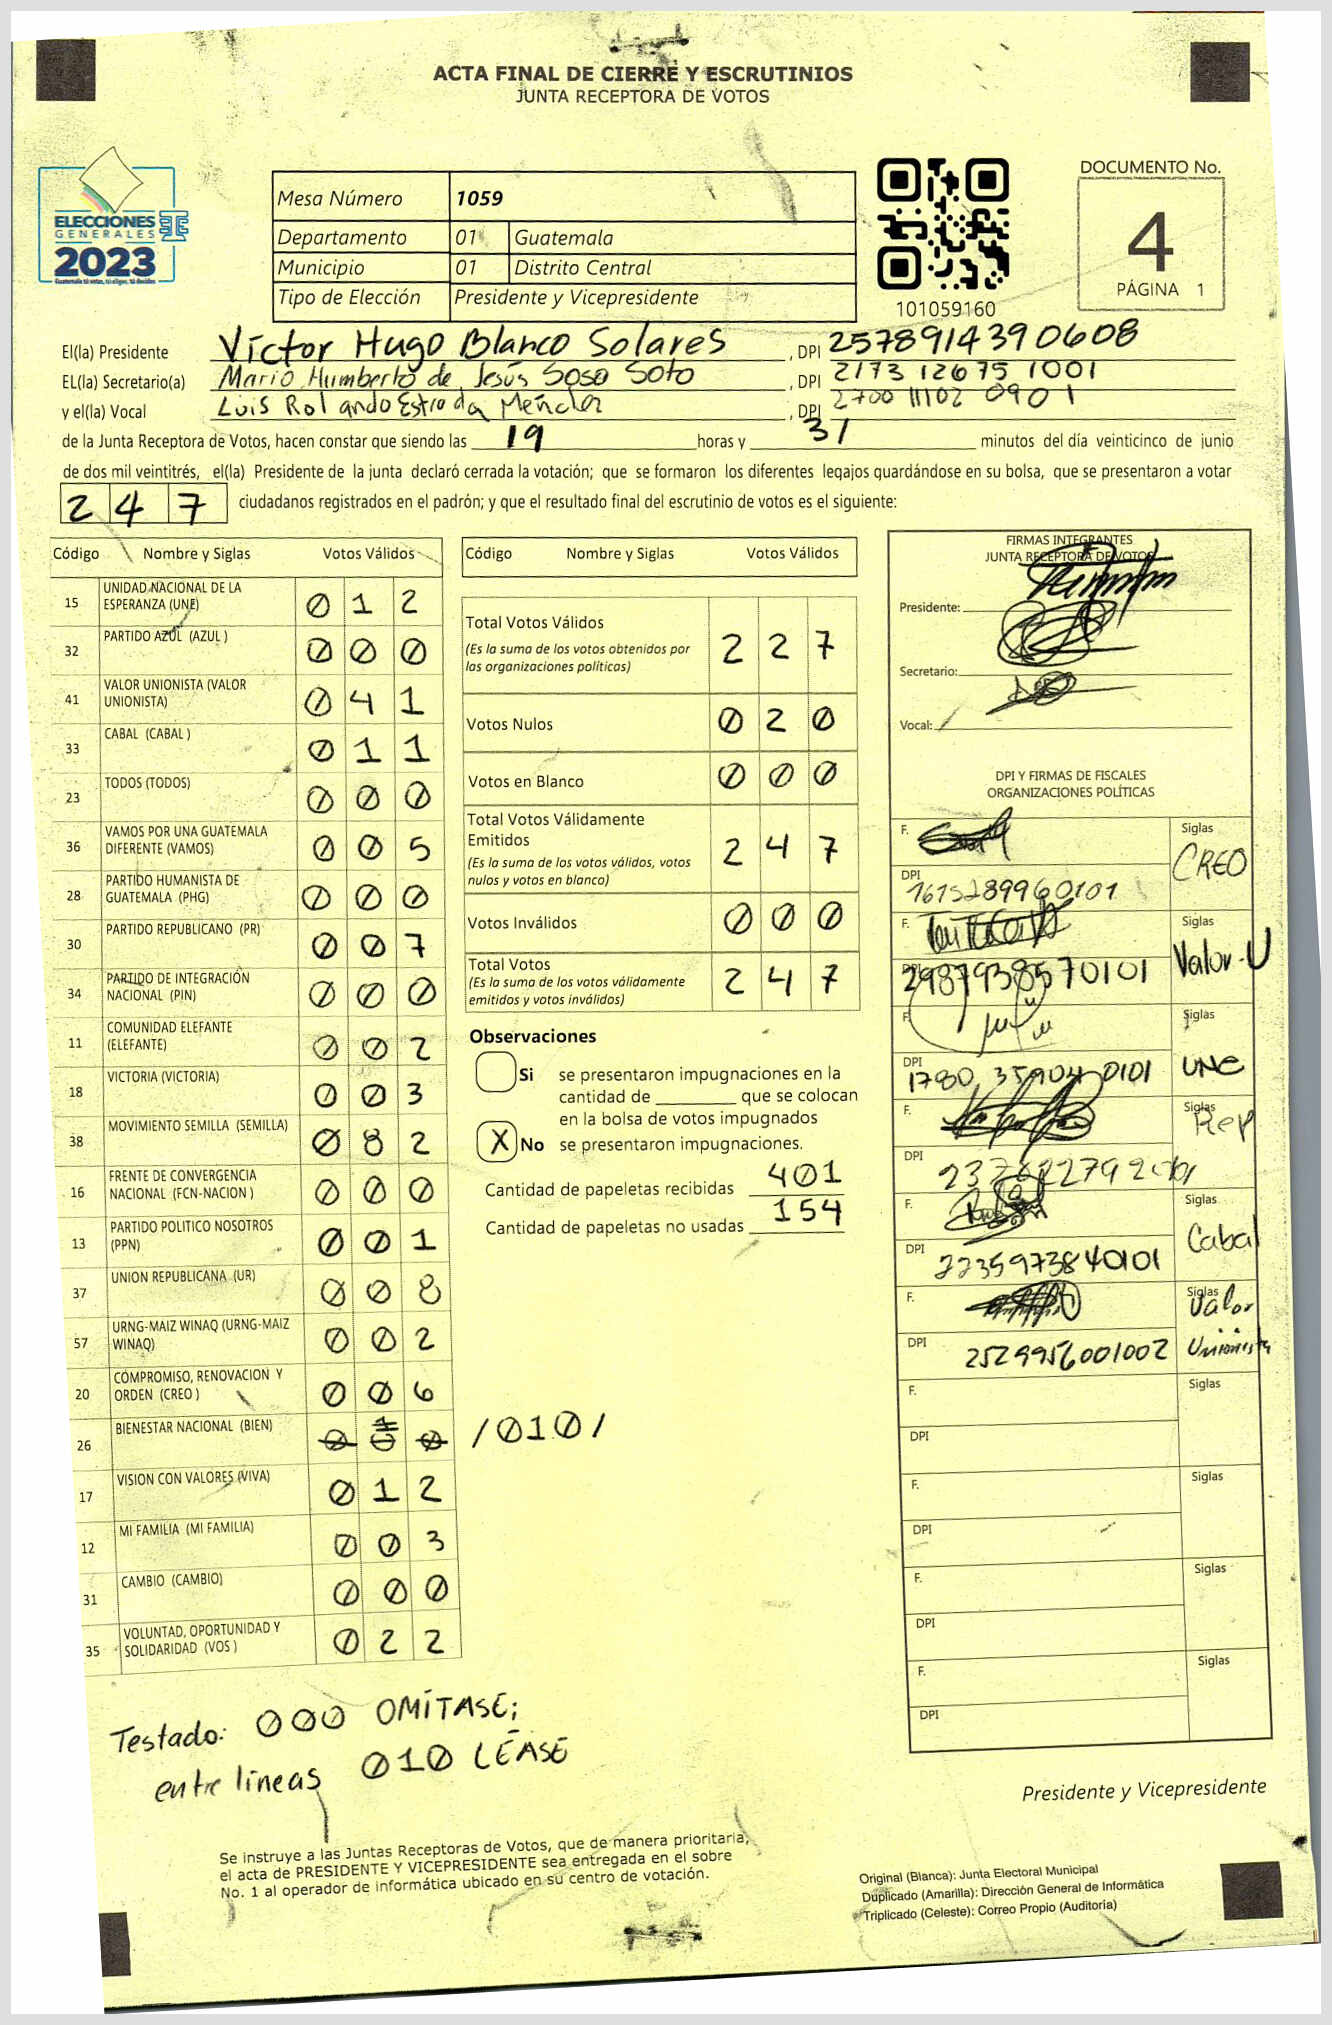 ACTA FINAL DE CIERRE Y ESCRUTINIOS
JUNTA RECEPTORA DE VOTOS
ELECCIONES
GENERALES
2023
Guatemala tú votas, tú eliges, tú decides
Mesa Número 1059
Departamento 01 Guatemala
Municipio 01 Distrito Central
Tipo de Elección Presidente y Vicepresidente
101059160
DOCUMENTO No.
4
PÁGINA 1
El(la) Presidente Víctor Hugo Blanco Solares , DPI 2578914390608
EL(la) Secretario(a) Mario Humberto de Jesús Soso Soto , DPI 2173 12675 1001
y el(la) Vocal Luis Rolando Estrada Méndez , DPI 2700 11102 0901
de la Junta Receptora de Votos, hacen constar que siendo las 19 horas y 31 minutos del día veinticinco de junio
de dos mil veintitrés, el(la) Presidente de la junta declaró cerrada la votación; que se formaron los diferentes legajos guardándose en su bolsa, que se presentaron a votar
2 4 7 ciudadanos registrados en el padrón; y que el resultado final del escrutinio de votos es el siguiente:
Código Nombre y Siglas Votos Válidos
15 UNIDAD NACIONAL DE LA ESPERANZA (UNE) 0 1 2
32 PARTIDO AZUL (AZUL ) 0 0 0
41 VALOR UNIONISTA (VALOR UNIONISTA) 0 4 1
33 CABAL (CABAL ) 0 1 1
23 TODOS (TODOS) 0 0 0
36 VAMOS POR UNA GUATEMALA DIFERENTE (VAMOS) 0 0 5
28 PARTIDO HUMANISTA DE GUATEMALA (PHG) 0 0 0
30 PARTIDO REPUBLICANO (PR) 0 0 7
34 PARTIDO DE INTEGRACIÓN NACIONAL (PIN) 0 0 0
11 COMUNIDAD ELEFANTE (ELEFANTE) 0 0 2
18 VICTORIA (VICTORIA) 0 0 3
38 MOVIMIENTO SEMILLA (SEMILLA) 0 8 2
16 FRENTE DE CONVERGENCIA NACIONAL (FCN-NACION ) 0 0 0
13 PARTIDO POLITICO NOSOTROS (PPN) 0 0 1
37 UNION REPUBLICANA (UR) 0 0 8
57 URNG-MAIZ WINAQ (URNG-MAIZ WINAQ) 0 0 2
20 COMPROMISO, RENOVACION Y ORDEN (CREO ) 0 0 6
26 BIENESTAR NACIONAL (BIEN) 0 0 0 /010/
17 VISION CON VALORES (VIVA) 0 1 2
12 MI FAMILIA (MI FAMILIA) 0 0 3
31 CAMBIO (CAMBIO) 0 0 0
35 VOLUNTAD, OPORTUNIDAD Y SOLIDARIDAD (VOS ) 0 2 2
Código Nombre y Siglas Votos Válidos
Total Votos Válidos 2 2 7
(Es la suma de los votos obtenidos por
las organizaciones políticas)
Votos Nulos 0 2 0
Votos en Blanco 0 0 0
Total Votos Válidamente
Emitidos 2 4 7
(Es la suma de los votos válidos, votos
nulos y votos en blanco)
Votos Inválidos 0 0 0
Total Votos 2 4 7
(Es la suma de los votos válidamente
emitidos y votos inválidos)
Observaciones
Si se presentaron impugnaciones en la
cantidad de ________ que se colocan
en la bolsa de votos impugnados
X No se presentaron impugnaciones.
Cantidad de papeletas recibidas 401
Cantidad de papeletas no usadas 154
FIRMAS INTEGRANTES
JUNTA RECEPTORA DE VOTOS
Presidente:
Secretario:
Vocal:
DPI Y FIRMAS DE FISCALES
ORGANIZACIONES POLÍTICAS
F. Siglas CREO
DPI 1615289960101
F. Siglas Valor-U
DPI 2987938570101
F. Siglas UNE
DPI 1780 35904 0101
F. Siglas Rep
DPI
F. Siglas Cabal
DPI 2235973840101
F. Siglas Valor Unionista
DPI 2529956001002
F. Siglas
DPI
F. Siglas
DPI
F. Siglas
DPI
F. Siglas
DPI
Testado: 000 OMÍTASE;
entre líneas 010 LÉASE
Presidente y Vicepresidente
Se instruye a las Juntas Receptoras de Votos, que de manera prioritaria,
el acta de PRESIDENTE Y VICEPRESIDENTE sea entregada en el sobre
No. 1 al operador de informática ubicado en su centro de votación.
Original (Blanca): Junta Electoral Municipal
Duplicado (Amarilla): Dirección General de Informática
Triplicado (Celeste): Correo Propio (Auditoría)